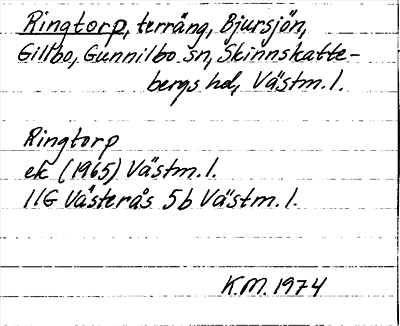 Ringtorp, terräng, Bjursjön,
Gillbo, Gunnilbo sn, Skinnskatte-
bergs hd, Västm. l.
Ringtorp
ek (1965) Västm. l.
11G Västerås 5b Västm. l.
K.M. 1974